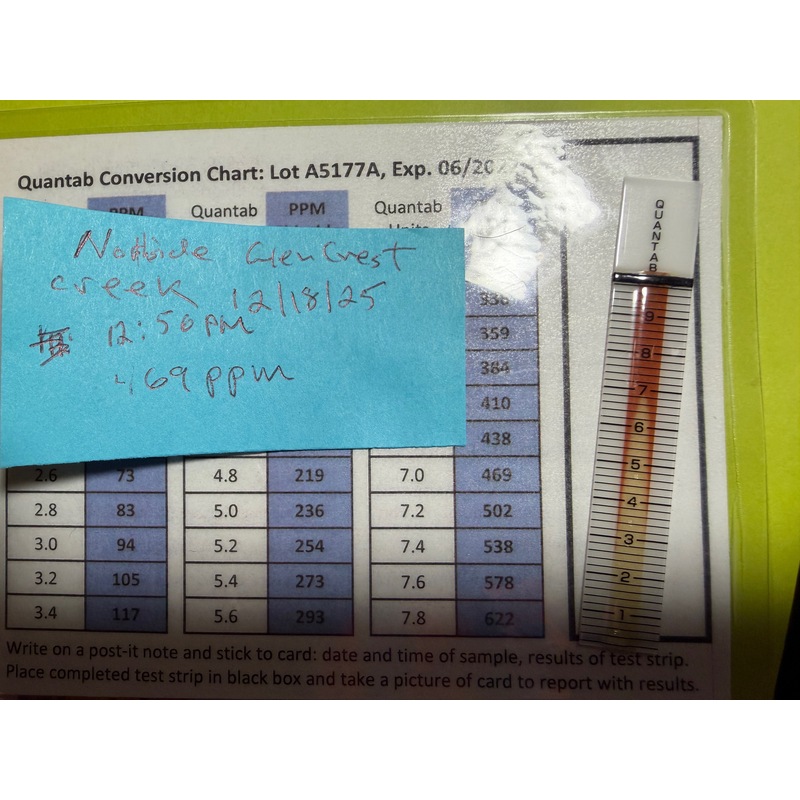 Quantab Conversion Chart: Lot A5177A, Exp. 06/20
PPM Quantab PPM Quantab
Creek 12/18/25
12:50 PM
469 ppm
336
359
384
410
438
2.6 73 4.8 219 7.0 469
2.8 83 5.0 236 7.2 502
3.0 94 5.2 254 7.4 538
3.2 105 5.4 273 7.6 578
3.4 117 5.6 293 7.8 622
Write on a post-it note and stick to card: date and time of sample, results of test strip.
Place completed test strip in black box and take a picture of card to report with results.
QUANTAB
9
8
7
6
5
4
3
2
1